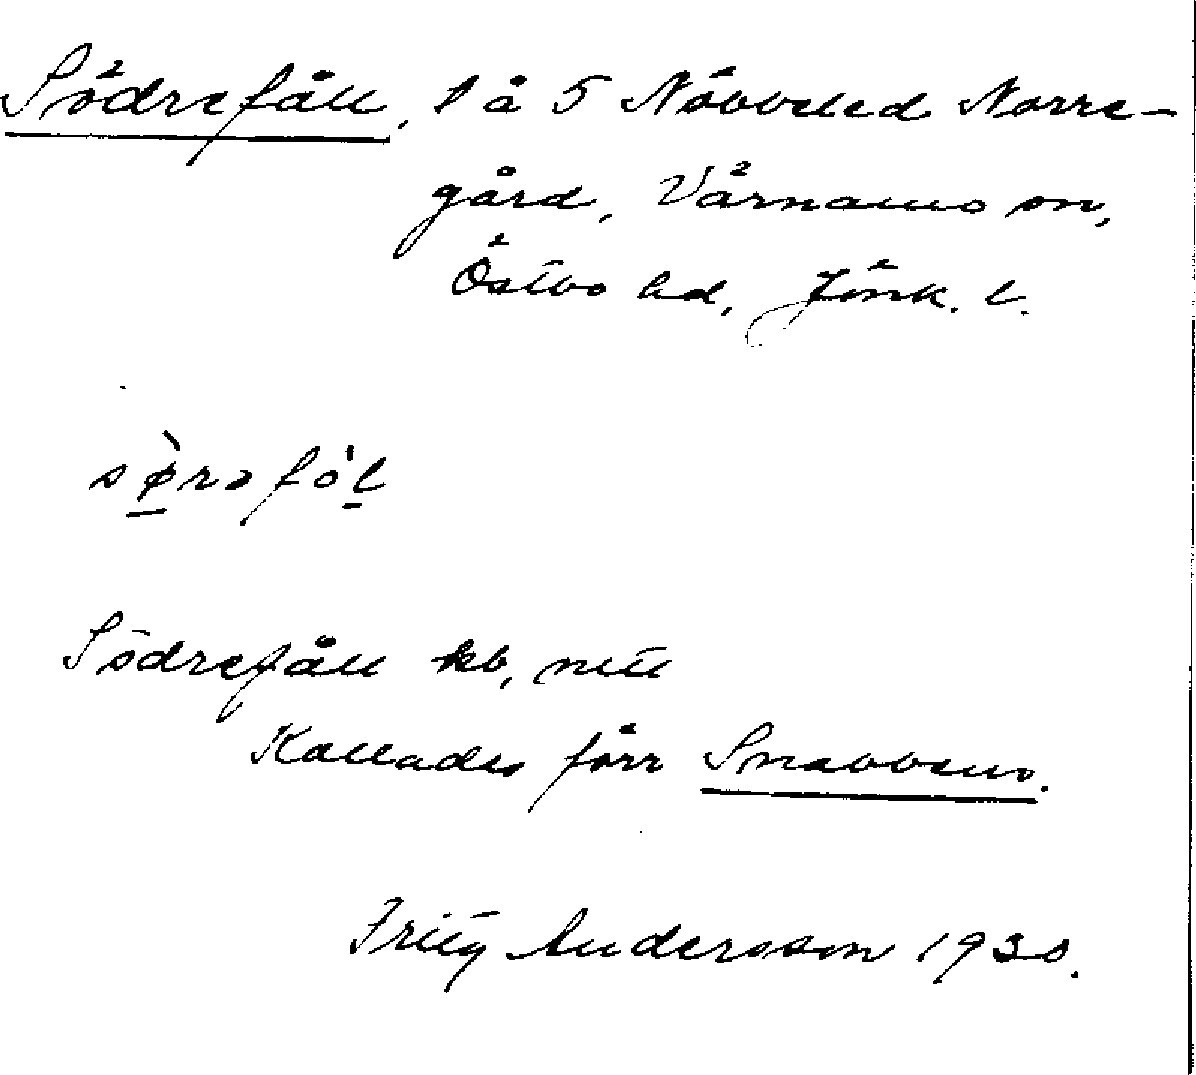 Södrefåll, l å 5 Nöbbeled Norre-
gård, Värnamo sn,
Östbo hd, Jönk. l.
sø̀rəfó̱l
Södrefåll kb, nitt
Kallades förr Snabbemo.
Fritz Andersson 1930.